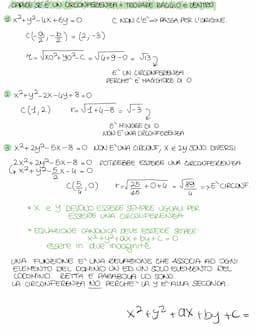 CAPIRE SE È UN CIRCONFERENZA + TROVARE RAGGIO E CENTRO
① x²+y²-4x+6y=0 C NON C'E' => PASSA PER L'ORIGINE.
C(-a/2, -b/2) = (2, -3)
r = √x0²+y0²-c = √4+9-0 = √13
E' UN CIRCONFERENZA
PERCHE' È MAGGIORE DI 0
② x²+y²-2x-4y+8=0
C(1,2) r=√1+4-8 = √-3
E' MINORE DI 0
NON E' UNA CIRCONFERENZA
③ x²+2y²-5x-8=0 NON E' UNA CIRCONF, X e 2y SONO DIVERSI
2x²+2y²-5x-8=0 POTREBBE ESSERE UNA CIRCONFERENZA
x²+y²-5/2x-4=0
C(5/4, 0) r=√25/16+0+4 = √89/4 => E' CIRCONF.
• X e Y DEVONO ESSERE SEMPRE UGUALI PER
ESSERE UNA CIRCONFERENZA
• EQUAZIONE CANONICA DEVE ESSERE SEMPRE
x²+y²+ax+by+c=0
essere in due incognite
UNA FUNZIONE E' UNA RELAZIONE CHE ASSOCIA AD OGNI
ELEMENTO DEL DOMINIO UN ED UN SOLO ELEMENTO DEL
CODOMINIO. RETTA E PARABOLA LO SONO.
LA CIRCONFERENZA NO PERCHE' LA Y E' ALLA SECONDA.
x²+y²+ax+by+c=